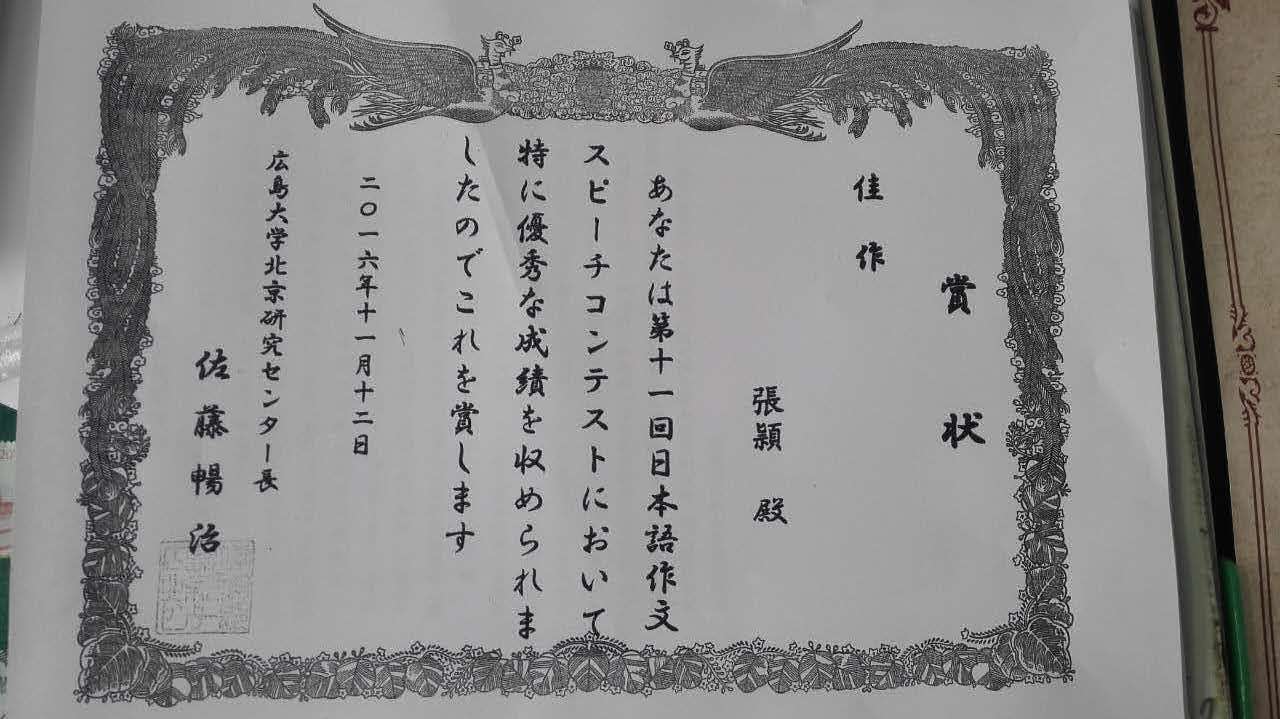 賞状
佳作
張穎 殿
あなたは第十一回日本語作文
スピーチコンテストにおいて
特に優秀な成績を収められま
したのでこれを賞します
二〇一六年十一月十二日
広島大学北京研究センター長
佐藤暢治